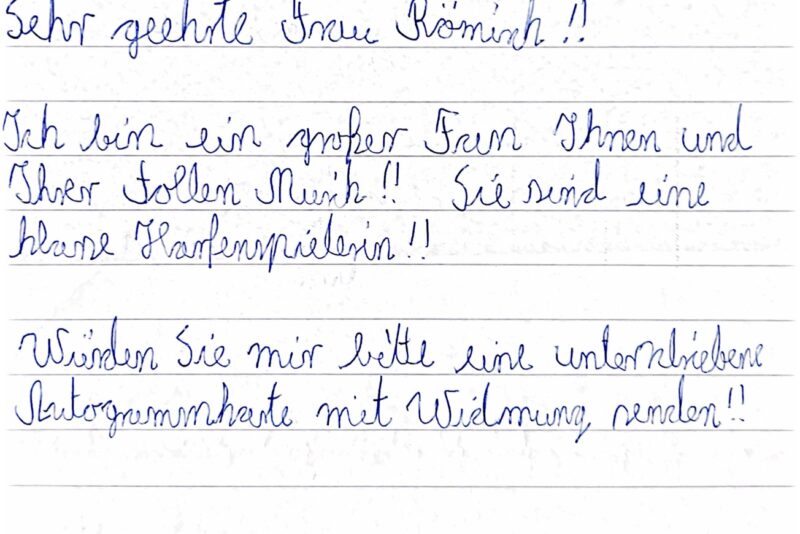 Sehr geehrte Frau Römisch!!
Ich bin ein großer Fan Ihnen und
Ihrer tollen Musik!! Sie sind eine
klasse Harfenspielerin!!
Würden Sie mir bitte eine unterschriebene
Autogrammkarte mit Widmung senden!!